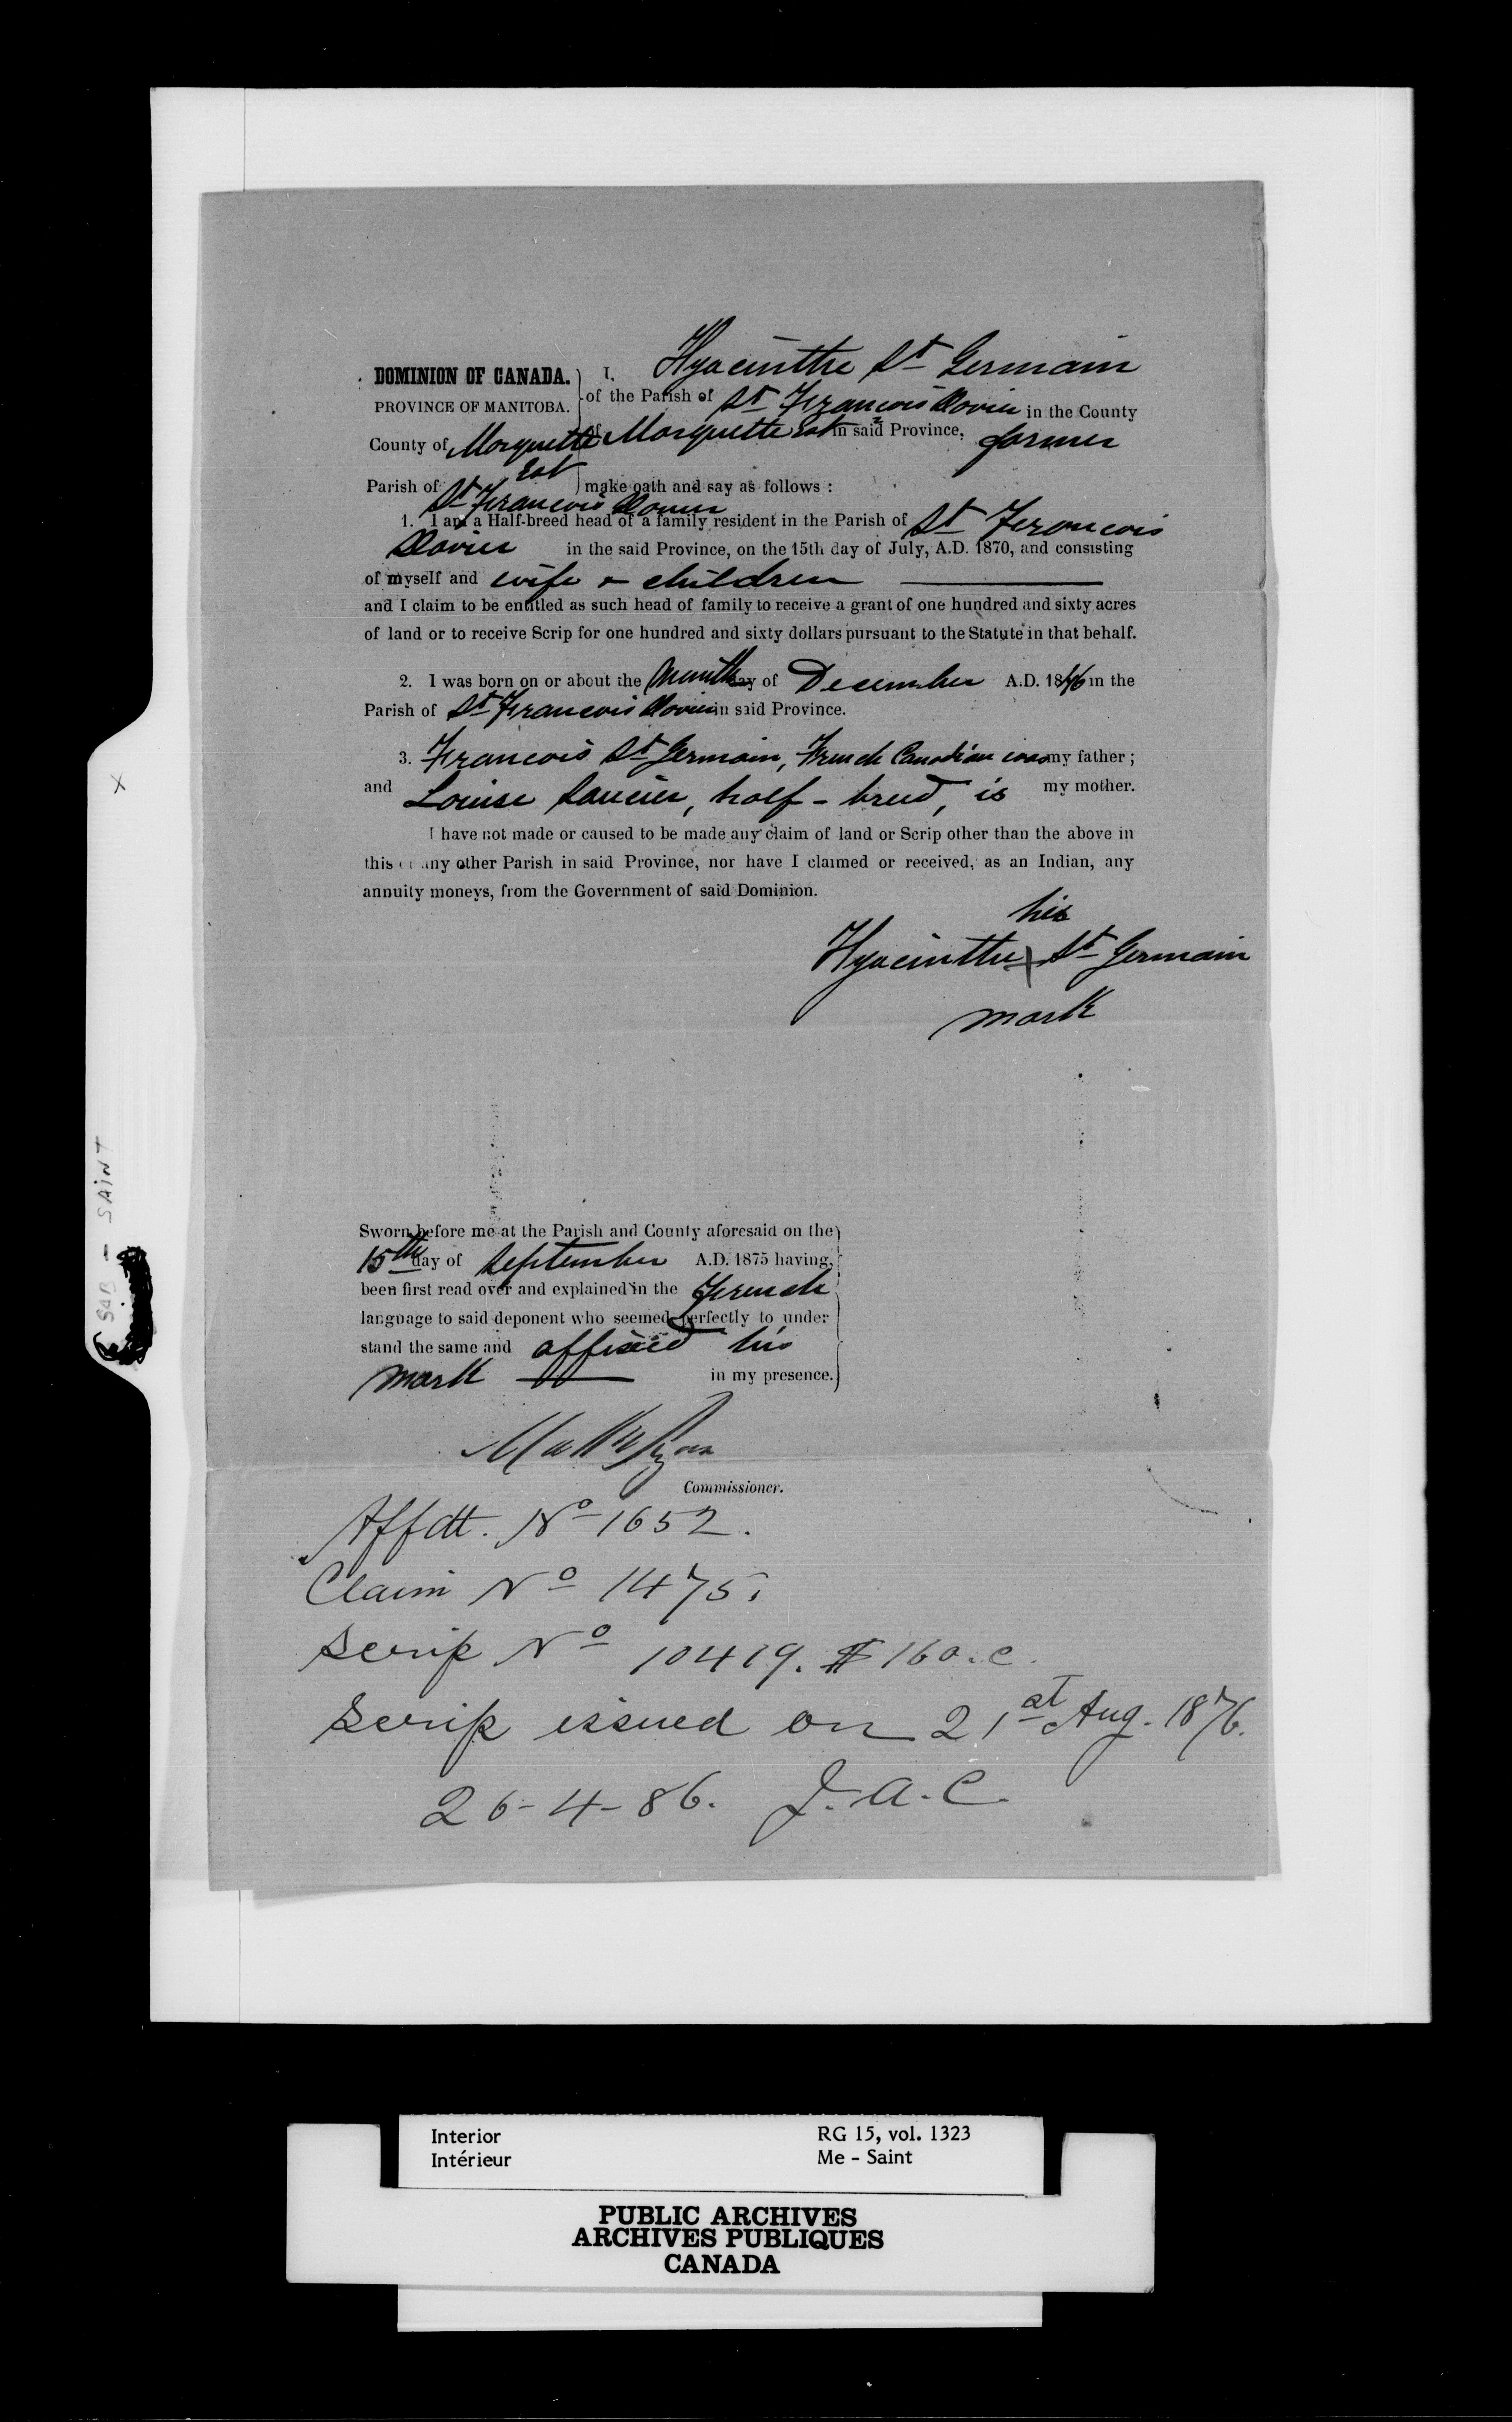 DOMINION OF CANADA.
PROVINCE OF MANITOBA.
County of Marquette
Est
Parish of
St Francois Xavier
I, Hyacinthe St Germain
of the Parish of St Francois Xavier in the County
of Marquette Est in said Province, farmer
make oath and say as follows :
1. I am a Half-breed head of a family resident in the Parish of St Francois
Xavier in the said Province, on the 15th day of July, A.D. 1870, and consisting
of myself and wife & children
and I claim to be entitled as such head of family to receive a grant of one hundred and sixty acres
of land or to receive Scrip for one hundred and sixty dollars pursuant to the Statute in that behalf.
2. I was born on or about the month day of December A.D. 1846 in the
Parish of St Francois Xavier in said Province.
3. Francois St Germain, French Canadian was my father ;
and Louise Saucier, half-breed, is my mother.
I have not made or caused to be made any claim of land or Scrip other than the above in
this or any other Parish in said Province, nor have I claimed or received, as an Indian, any
annuity moneys, from the Government of said Dominion.
his
Hyacinthe X St Germain
mark
Sworn before me at the Parish and County aforesaid on the
15th day of September A.D. 1875 having
been first read over and explained in the French
language to said deponent who seemed perfectly to under
stand the same and affixed his
mark in my presence.
Matt Ryan
Commissioner.
Affdt. No 1652.
Claim No 1475.
Scrip No 10419. $160.c.
Scrip issued on 21st Aug. 1876.
26-4-86. J.A.C.
X
SAB - SAINT
Interior
Intérieur
RG 15, vol. 1323
Me - Saint
PUBLIC ARCHIVES
ARCHIVES PUBLIQUES
CANADA